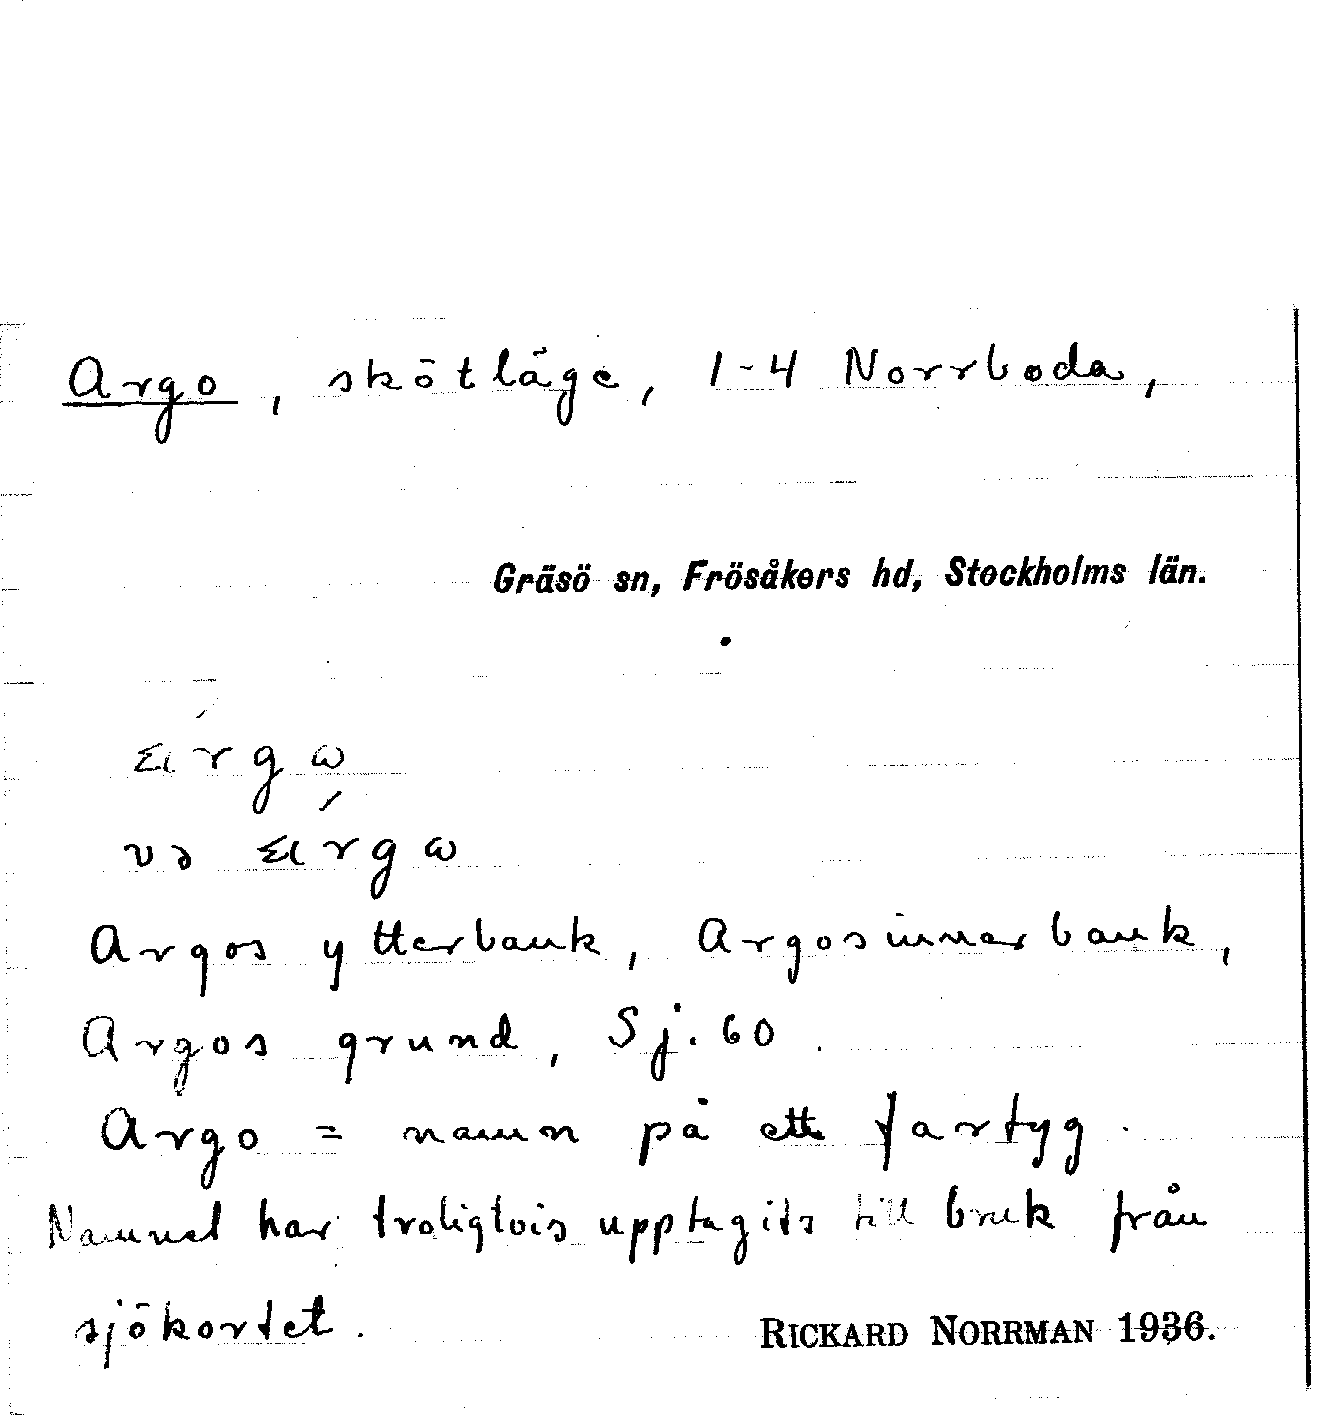 Argo, skötläge, 1-4 Norrboda,
Gräsö sn, Frösåkers hd, Stockholms län.
Argos ytterbank, Argosinnerbank,
Argos grund, Sj. 60.
Argo = namn på ett fartyg.
Namnet har troligtvis upptagits till bruk från
sjökortet.
RICKARD NORRMAN 1936.